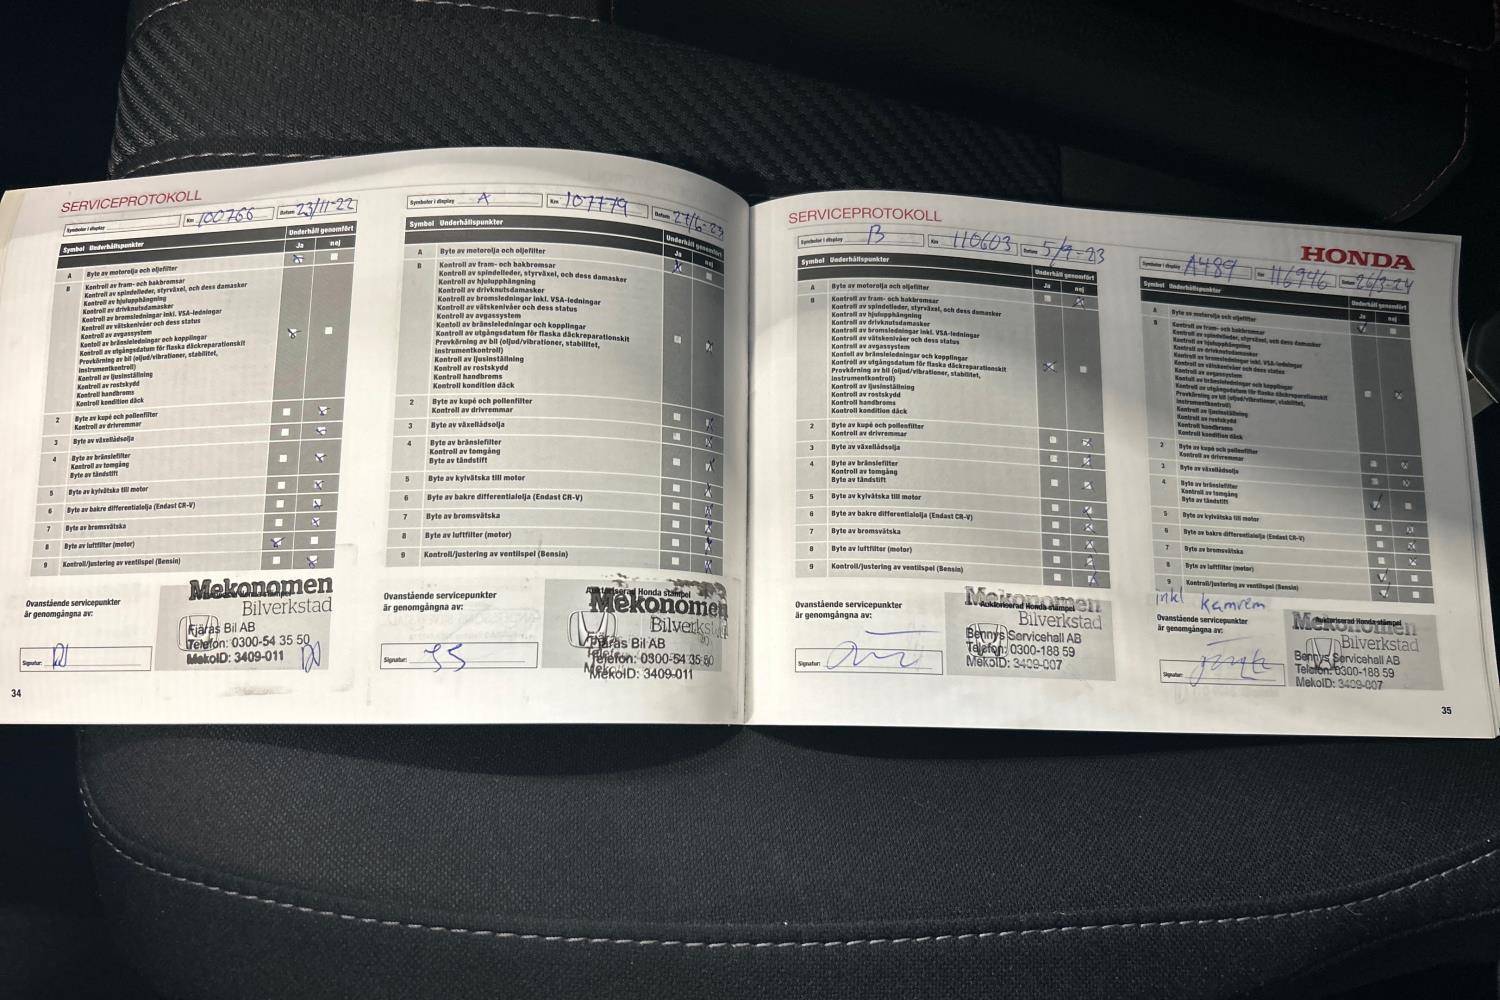 SERVICEPROTOKOLL
Symboler i display
Km 100766
Datum 23/11-22
Symbol Underhållspunkter
Underhåll genomfört
Ja nej
A Byte av motorolja och oljefilter
B Kontroll av fram- och bakbromsar
Kontroll av spindelleder, styrväxel, och dess damasker
Kontroll av hjulupphängning
Kontroll av drivknutsdamasker
Kontroll av bromsledningar inkl. VSA-ledningar
Kontroll av vätskenivåer och dess status
Kontroll av avgassystem
Kontoll av bränsleledningar och kopplingar
Kontroll av utgångsdatum för flaska däckreparationskit
Provkörning av bil (oljud/vibrationer, stabilitet,
instrumentkontroll)
Kontroll av ljusinställning
Kontroll av rostskydd
Kontroll handbroms
Kontroll kondition däck
2 Byte av kupé och pollenfilter
Kontroll av drivremmar
3 Byte av växellådsolja
4 Byte av bränslefilter
Kontroll av tomgång
Byte av tändstift
5 Byte av kylvätska till motor
6 Byte av bakre differentialolja (Endast CR-V)
7 Byte av bromsvätska
8 Byte av luftfilter (motor)
9 Kontroll/justering av ventilspel (Bensin)
Ovanstående servicepunkter
är genomgångna av:
Signatur:
Mekonomen
Bilverkstad
Fjärås Bil AB
Telefon: 0300-54 35 50
MekoID: 3409-011
34
Symboler i display A
Km 107779
Datum 27/6-23
Symbol Underhållspunkter
Underhåll genomfört
Ja nej
A Byte av motorolja och oljefilter
B Kontroll av fram- och bakbromsar
Kontroll av spindelleder, styrväxel, och dess damasker
Kontroll av hjulupphängning
Kontroll av drivknutsdamasker
Kontroll av bromsledningar inkl. VSA-ledningar
Kontroll av vätskenivåer och dess status
Kontroll av avgassystem
Kontoll av bränsleledningar och kopplingar
Kontroll av utgångsdatum för flaska däckreparationskit
Provkörning av bil (oljud/vibrationer, stabilitet,
instrumentkontroll)
Kontroll av ljusinställning
Kontroll av rostskydd
Kontroll handbroms
Kontroll kondition däck
2 Byte av kupé och pollenfilter
Kontroll av drivremmar
3 Byte av växellådsolja
4 Byte av bränslefilter
Kontroll av tomgång
Byte av tändstift
5 Byte av kylvätska till motor
6 Byte av bakre differentialolja (Endast CR-V)
7 Byte av bromsvätska
8 Byte av luftfilter (motor)
9 Kontroll/justering av ventilspel (Bensin)
Ovanstående servicepunkter
är genomgångna av:
Signatur:
Auktoriserad Honda stämpel
Mekonomen
Bilverkstad
Fjärås Bil AB
Telefon: 0300-54 35 50
MekoID: 3409-011
SERVICEPROTOKOLL
Symboler i display B
Km 110603
Datum 5/9-23
Symbol Underhållspunkter
Underhåll genomfört
Ja nej
A Byte av motorolja och oljefilter
B Kontroll av fram- och bakbromsar
Kontroll av spindelleder, styrväxel, och dess damasker
Kontroll av hjulupphängning
Kontroll av drivknutsdamasker
Kontroll av bromsledningar inkl. VSA-ledningar
Kontroll av vätskenivåer och dess status
Kontroll av avgassystem
Kontoll av bränsleledningar och kopplingar
Kontroll av utgångsdatum för flaska däckreparationskit
Provkörning av bil (oljud/vibrationer, stabilitet,
instrumentkontroll)
Kontroll av ljusinställning
Kontroll av rostskydd
Kontroll handbroms
Kontroll kondition däck
2 Byte av kupé och pollenfilter
Kontroll av drivremmar
3 Byte av växellådsolja
4 Byte av bränslefilter
Kontroll av tomgång
Byte av tändstift
5 Byte av kylvätska till motor
6 Byte av bakre differentialolja (Endast CR-V)
7 Byte av bromsvätska
8 Byte av luftfilter (motor)
9 Kontroll/justering av ventilspel (Bensin)
Ovanstående servicepunkter
är genomgångna av:
Signatur:
Auktoriserad Honda stämpel
Mekonomen
Bilverkstad
Bennys Servicehall AB
Telefon: 0300-188 59
MekoID: 3409-007
HONDA
Symboler i display A489
Km 116946
Datum 26/3-24
Symbol Underhållspunkter
Underhåll genomfört
Ja nej
A Byte av motorolja och oljefilter
B Kontroll av fram- och bakbromsar
Kontroll av spindelleder, styrväxel, och dess damasker
Kontroll av hjulupphängning
Kontroll av drivknutsdamasker
Kontroll av bromsledningar inkl. VSA-ledningar
Kontroll av vätskenivåer och dess status
Kontroll av avgassystem
Kontoll av bränsleledningar och kopplingar
Kontroll av utgångsdatum för flaska däckreparationskit
Provkörning av bil (oljud/vibrationer, stabilitet,
instrumentkontroll)
Kontroll av ljusinställning
Kontroll av rostskydd
Kontroll handbroms
Kontroll kondition däck
2 Byte av kupé och pollenfilter
Kontroll av drivremmar
3 Byte av växellådsolja
4 Byte av bränslefilter
Kontroll av tomgång
Byte av tändstift
5 Byte av kylvätska till motor
6 Byte av bakre differentialolja (Endast CR-V)
7 Byte av bromsvätska
8 Byte av luftfilter (motor)
9 Kontroll/justering av ventilspel (Bensin)
inkl kamrem
Ovanstående servicepunkter
är genomgångna av:
Signatur:
Auktoriserad Honda stämpel
Mekonomen
Bilverkstad
Bennys Servicehall AB
Telefon: 0300-188 59
MekoID: 3409-007
35